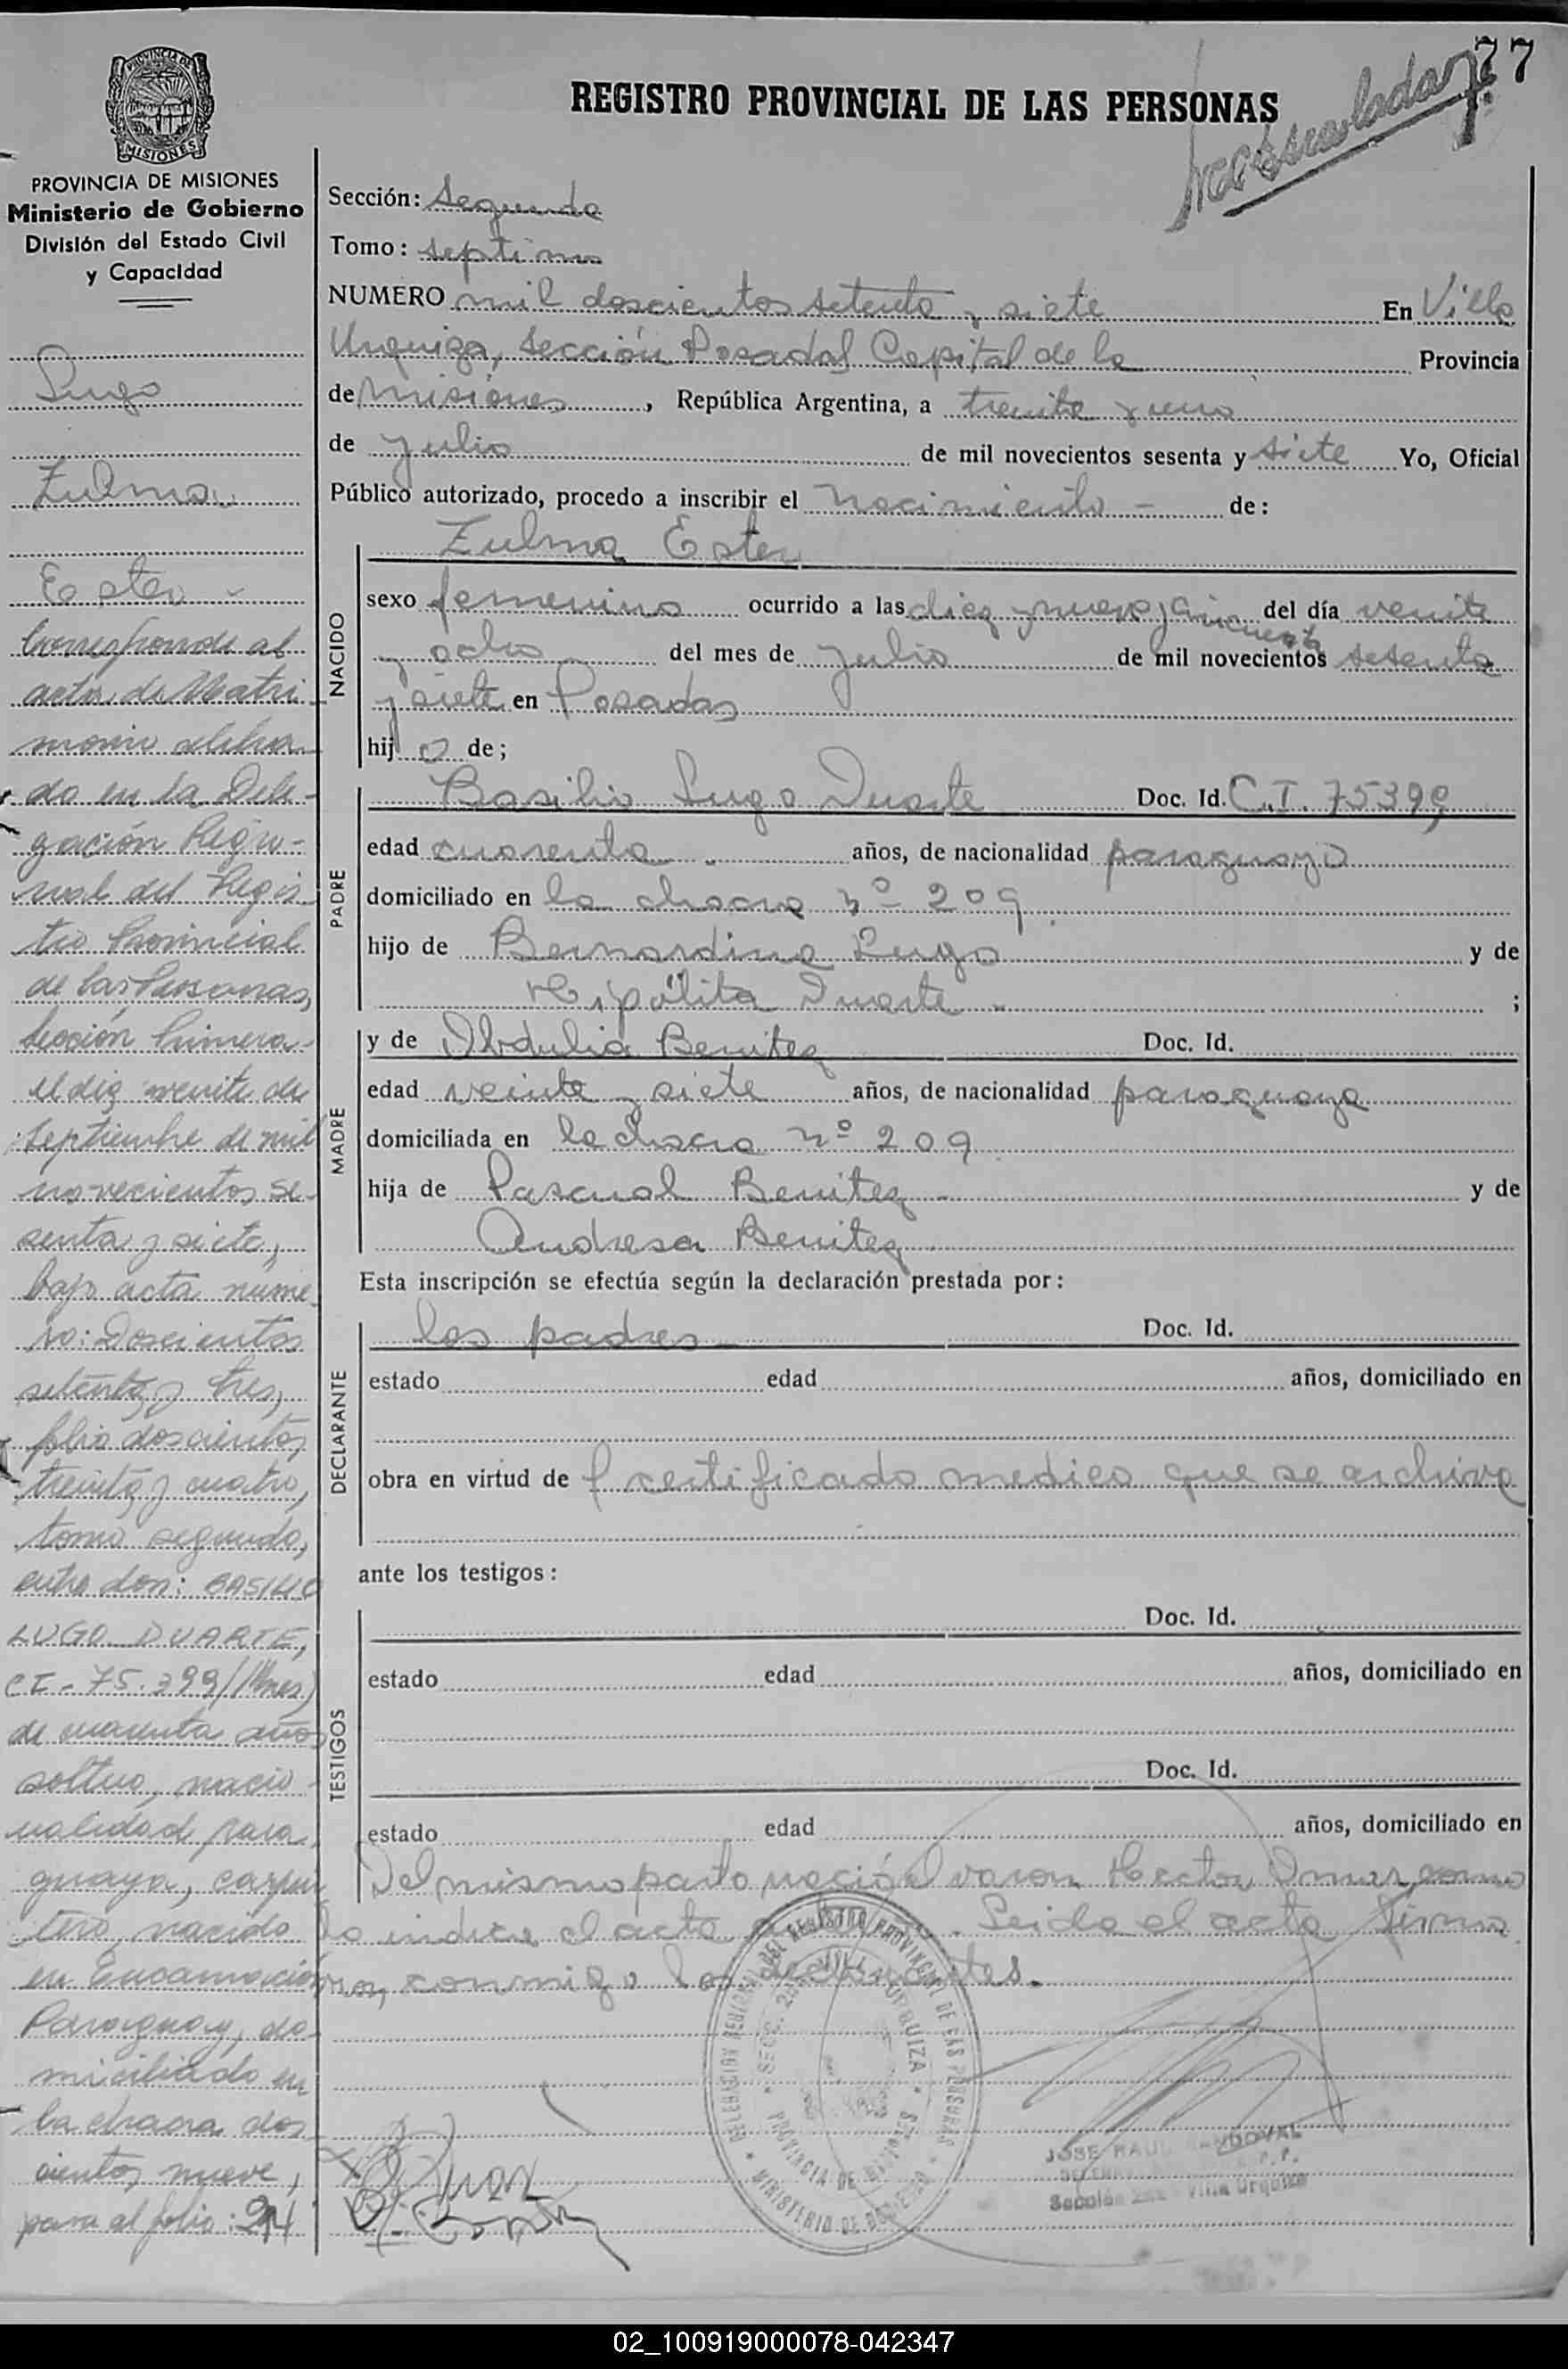 77
REGISTRO PROVINCIAL DE LAS PERSONAS
PROVINCIA DE MISIONES
Ministerio de Gobierno
División del Estado Civil
y Capacidad
Lugo
Zulma
Ester
Corresponde al
acta de Matri-
monio celebra-
do en la Dele-
gación Regio-
nal del Regis-
tro Provincial
de las Personas,
Sección Primera
el día veinte de
Septiembre de mil
novecientos se-
senta y siete,
bajo acta núme-
ro: Doscientos
setenta y tres,
folio doscientos
treinta y cuatro,
tomo segundo,
entre don: BASILIO
LUGO DUARTE,
CI- 75.399 (Mnes)
de cuarenta años
soltero, nacio-
nalidad para-
guaya, carpin-
tero, nacido
en Encarnación
Paraguay, do-
miciliado en
la chacra dos-
cientos nueve,
pasa al folio:
Sección: Segunda
Tomo: septimo
NUMERO mil doscientos setenta y siete En Villa
Urquiza, sección Posadas Capital de la Provincia
de Misiones, República Argentina, a treinta y uno
de Julio de mil novecientos sesenta y siete Yo, Oficial
Público autorizado, procedo a inscribir el nacimiento - de:
Zulma Ester
NACIDO
sexo femenino ocurrido a las diez y nueve y cincuenta del día veinte
y ocho del mes de Julio de mil novecientos sesenta
y siete en Posadas
hij a de;
PADRE
Basilio Lugo Duarte Doc. Id. C.I. 75399
edad cuarenta años, de nacionalidad paraguayo
domiciliado en la chacra nº 209
hijo de Bernardino Lugo y de
Hipólita Duarte ;
MADRE
y de Obdulia Benitez Doc. Id.
edad veinte y siete años, de nacionalidad paraguaya
domiciliada en la chacra nº 209
hija de Pascual Benitez y de
Andresa Benitez
Esta inscripción se efectúa según la declaración prestada por:
DECLARANTE
los padres Doc. Id.
estado edad años, domiciliado en
obra en virtud de certificado medico que se archiva
ante los testigos:
TESTIGOS
Doc. Id.
estado edad años, domiciliado en
Doc. Id.
estado edad años, domiciliado en
Del mismo parto nació el varon Hector Omar, como
lo indica el acta Leida el acta firma
ron conmigo los declarantes.
DELEGACION REGIONAL DEL REGISTRO PROVINCIAL DE LAS PERSONAS
MINISTERIO DE GOBIERNO
PROVINCIA DE MISIONES
JOSE RAUL SANDOVAL
Sección 2da. Villa Urquiza
02_100919000078-042347